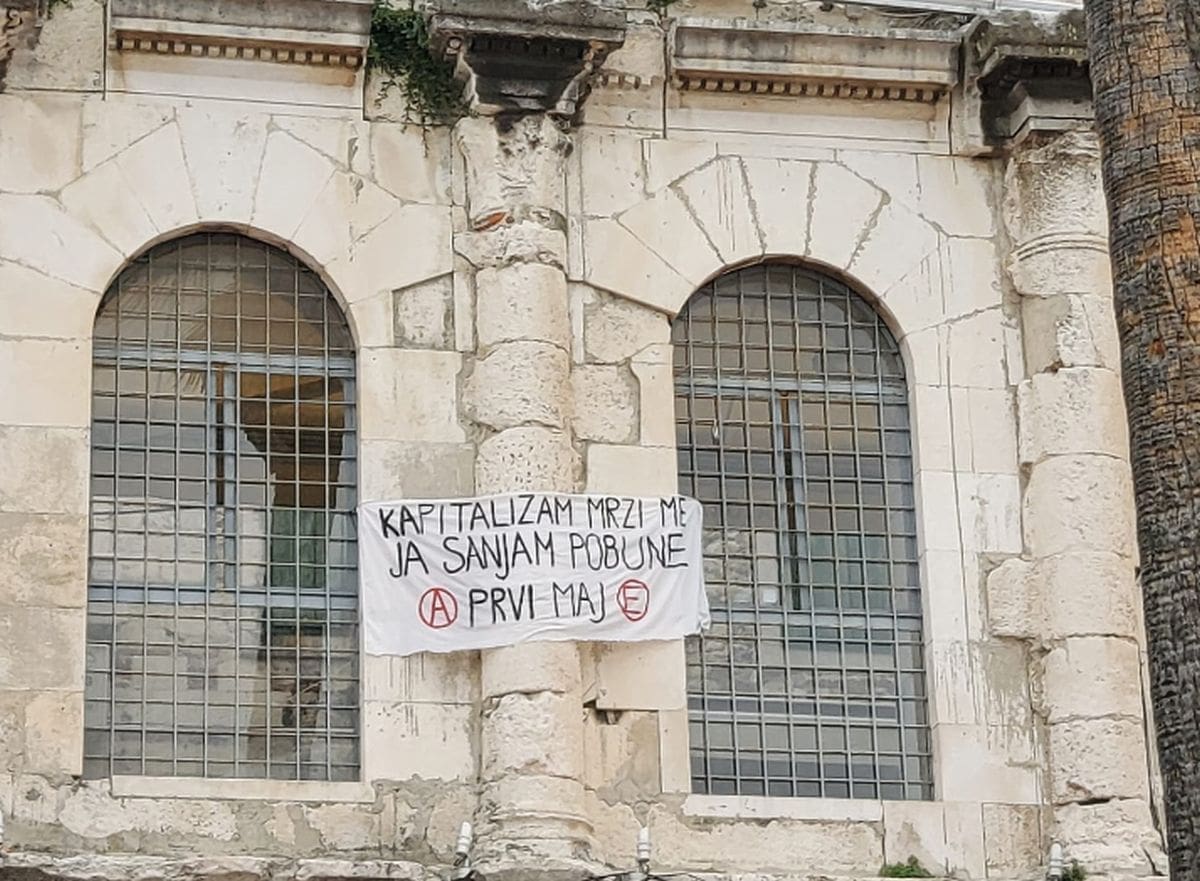 KAPITALIZAM MRZI ME
JA SANJAM POBUNE
A PRVI MAJ E